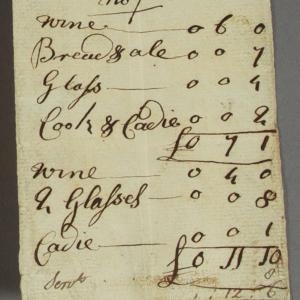 Wine — 0 6 0
Bread & ale 0 0 7
Glass — 0 0 4
Cook & Cadie 0 0 2
£0 7 1
Wine — 0 4 0
2 Glasses — 0 0 8
Cadie — 0 0 1
£0 11 10
8
12 6